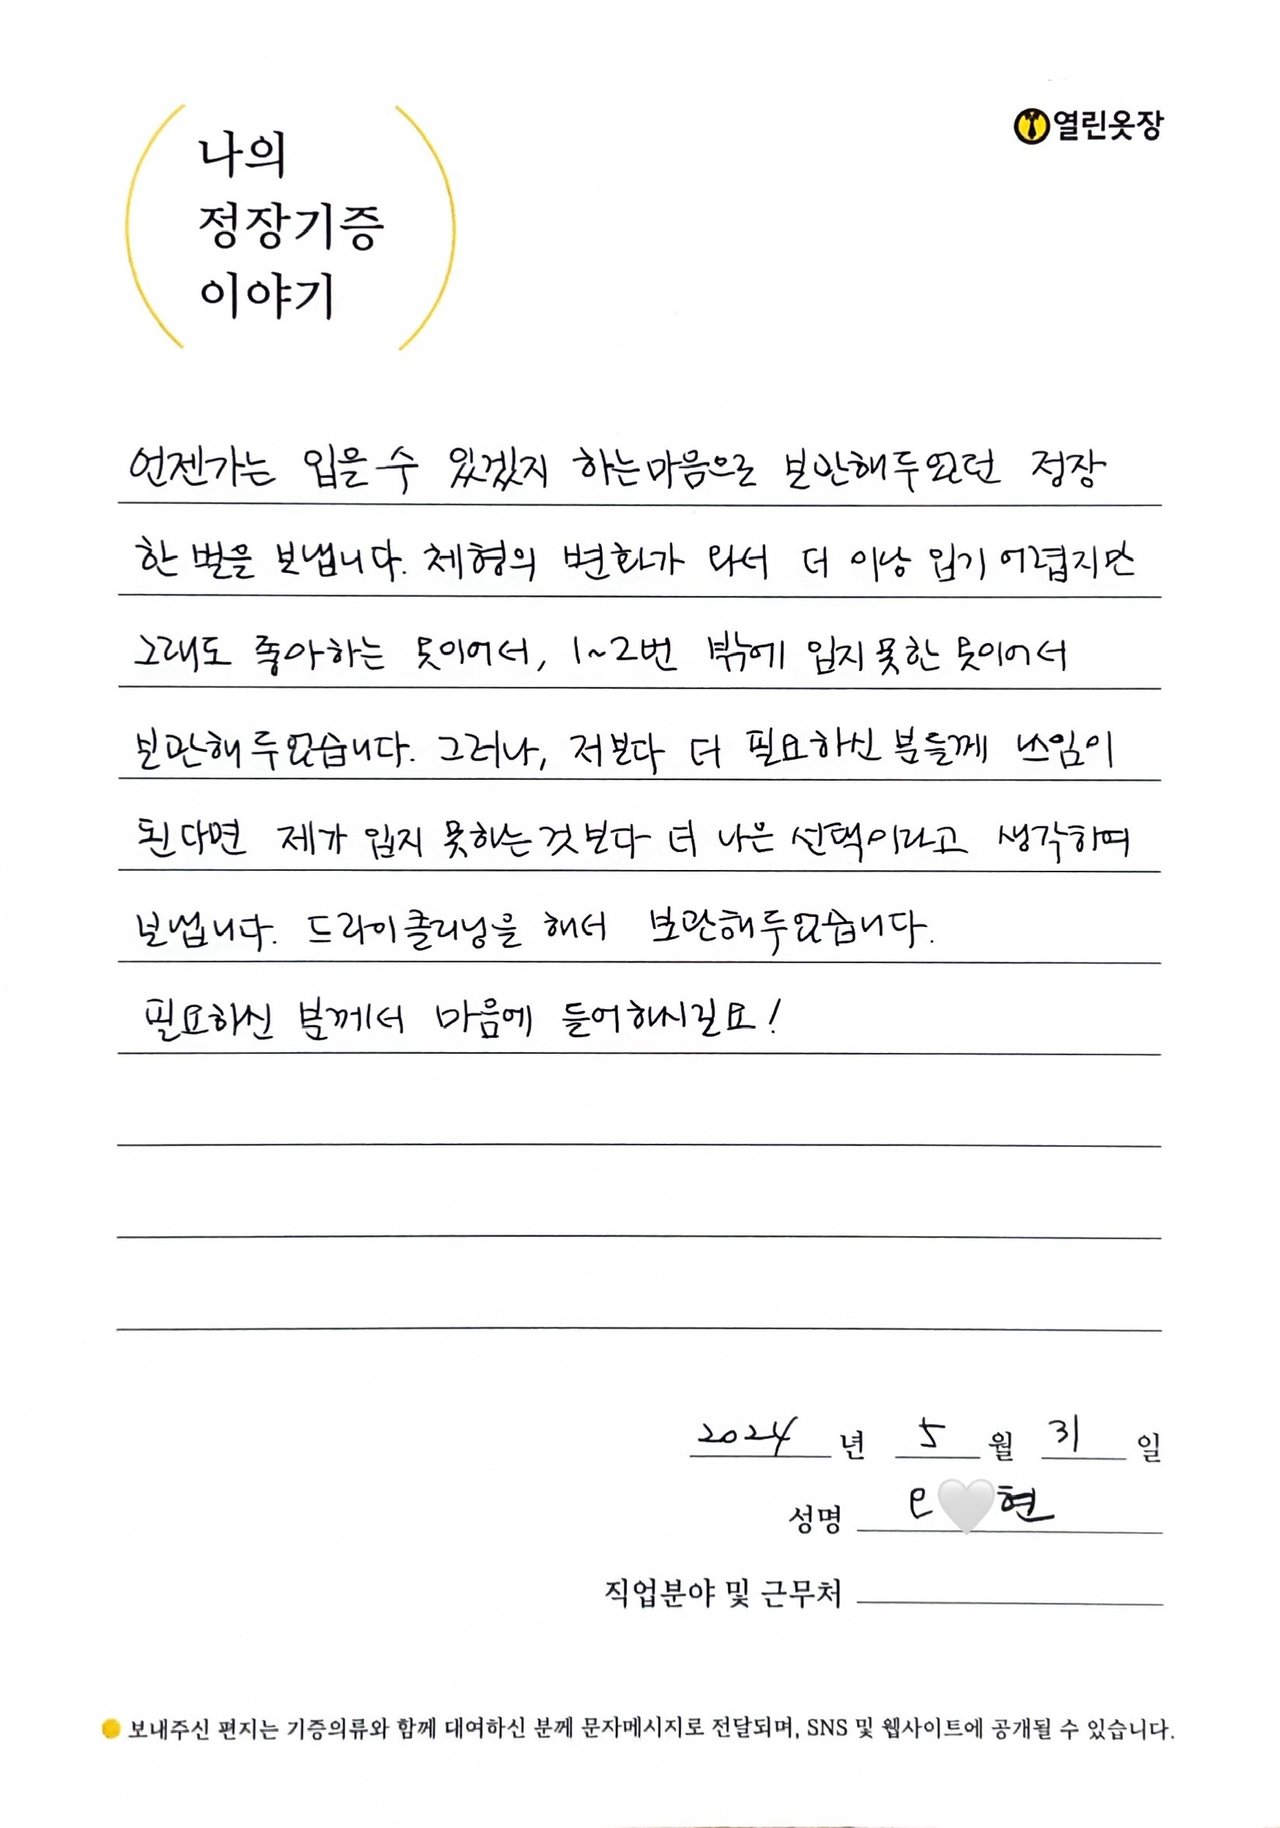 열린옷장
나의
정장기증
이야기
언젠가는 입을 수 있겠지 하는 마음으로 보관해두었던 정장
한 벌을 보냅니다. 체형의 변화가 와서 더 이상 입기 어렵지만
그래도 좋아하는 옷이어서, 1~2번 밖에 입지 못한 옷이어서
보관해 두었습니다. 그러나, 저보다 더 필요하신 분들께 쓰임이
된다면 제가 입지 못하는 것보다 더 나은 선택이라고 생각하며
보냅니다. 드라이클리닝을 해서 보관해두었습니다.
필요하신 분께서 마음에 들어하시길요!
2024 년 5 월 31 일
성명 현
직업분야 및 근무처
보내주신 편지는 기증의류와 함께 대여하신 분께 문자메시지로 전달되며, SNS 및 웹사이트에 공개될 수 있습니다.